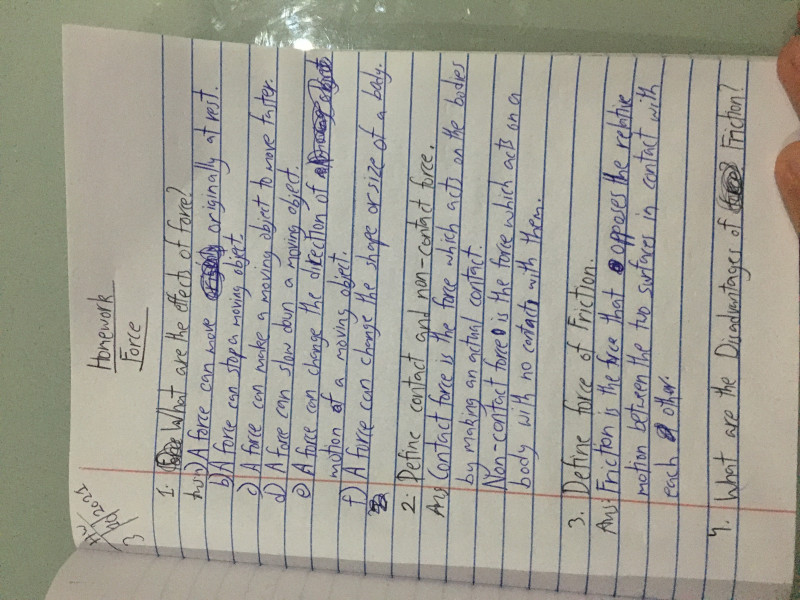 Homework
Force
1. What are the effects of force?
Ans) A force can move originally at rest.
b) A force can stop a moving object.
c) A force can make a moving object to move faster.
d) A force can slow down a moving object.
e) A force can change the direction of
motion of a moving object.
f) A force can change the shape or size of a body.
2. Define contact and non-contact force.
Ans Contact force is the force which acts on the bodies
by making an actual contact.
Non-contact force is the force which acts on a
body with no contact with them.
3. Define force of Friction.
Ans: Friction is the force that opposes the relative
motion between the two surfaces in contact with
each other.
4. What are the Disadvantages of Friction?